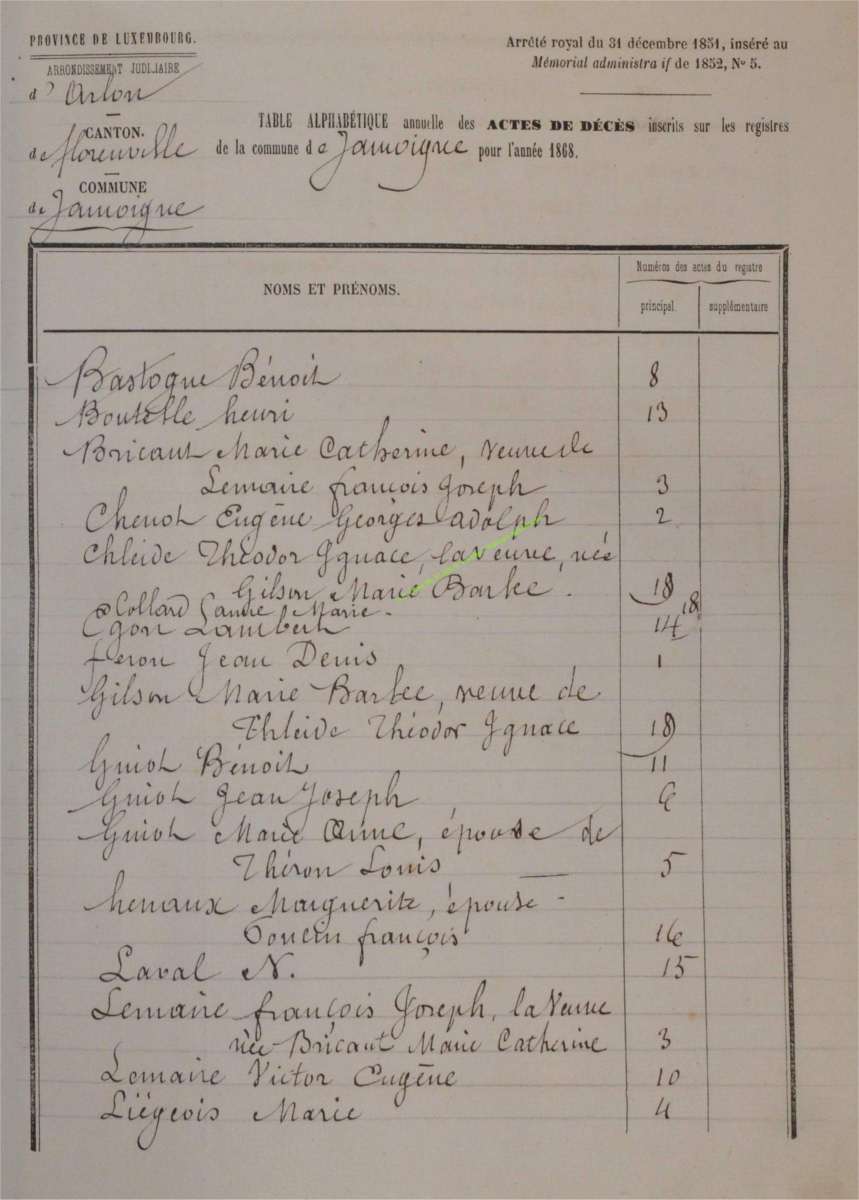 PROVINCE DE LUXEMBOURG.
ARRONDISSEMENT JUDICIAIRE
d'Arlon
CANTON.
de florenville
COMMUNE
de Jamoigne
Arrêté royal du 31 décembre 1851, inséré au
Mémorial administra if de 1852, No 5.
TABLE ALPHABÉTIQUE annuelle des ACTES DE DÉCÈS inscrits sur les registres
de la commune de Jamoigne pour l'année 1868.
NOMS ET PRÉNOMS.
Numéros des actes du registre
principal.
supplémentaire
Bastogne Bénoit 8
Boutelle henri 13
Bricaut Marie Catherine, veuve de
Lemaire françois Joseph 3
Chenot Eugène Georges adolph 2
Chleide Théodor Ignace, la veuve, née
Gilson Marie Barbe. 18
Collard Marie 18
Egon Lambert 14
feron Jean Denis 1
Gilson Marie Barbe, veuve de
Thleide Théodor Ignace 18
Guiot Bénoit 11
Guiot Jean Joseph 6
Guiot Marie Anne, épouse de
Théron Louis 5
henaux Marguerite, épouse
françois 16
Laval N. 15
Lemaire françois Joseph, la Veuve
née Bricaut Marie Catherine 3
Lemaire Victor Eugène 10
Liégeois Marie 4